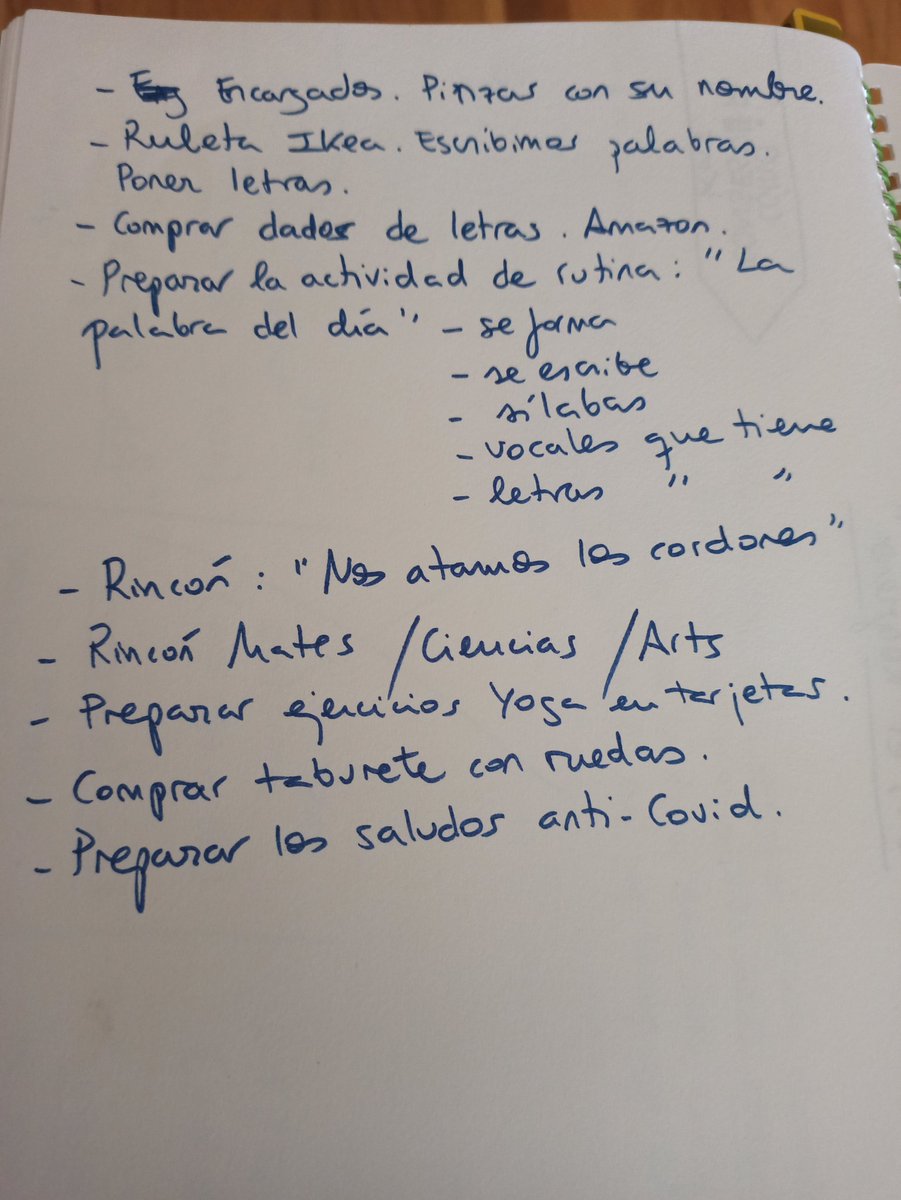 - Encargados. Pinzas con su nombre.
- Ruleta Ikea. Escribimos palabras.
Poner letras.
- Comprar dados de letras. Amazon.
- Preparar la actividad de rutina: "La
palabra del día" - se forma
- se escribe
- sílabas
- vocales que tiene
- letras " "
- Rincón: "Nos atamos los cordones"
- Rincón Mates / Ciencias / Arts
- Preparar ejercicios Yoga en tarjetas.
- Comprar taburete con ruedas.
- Preparar los saludos anti-Covid.